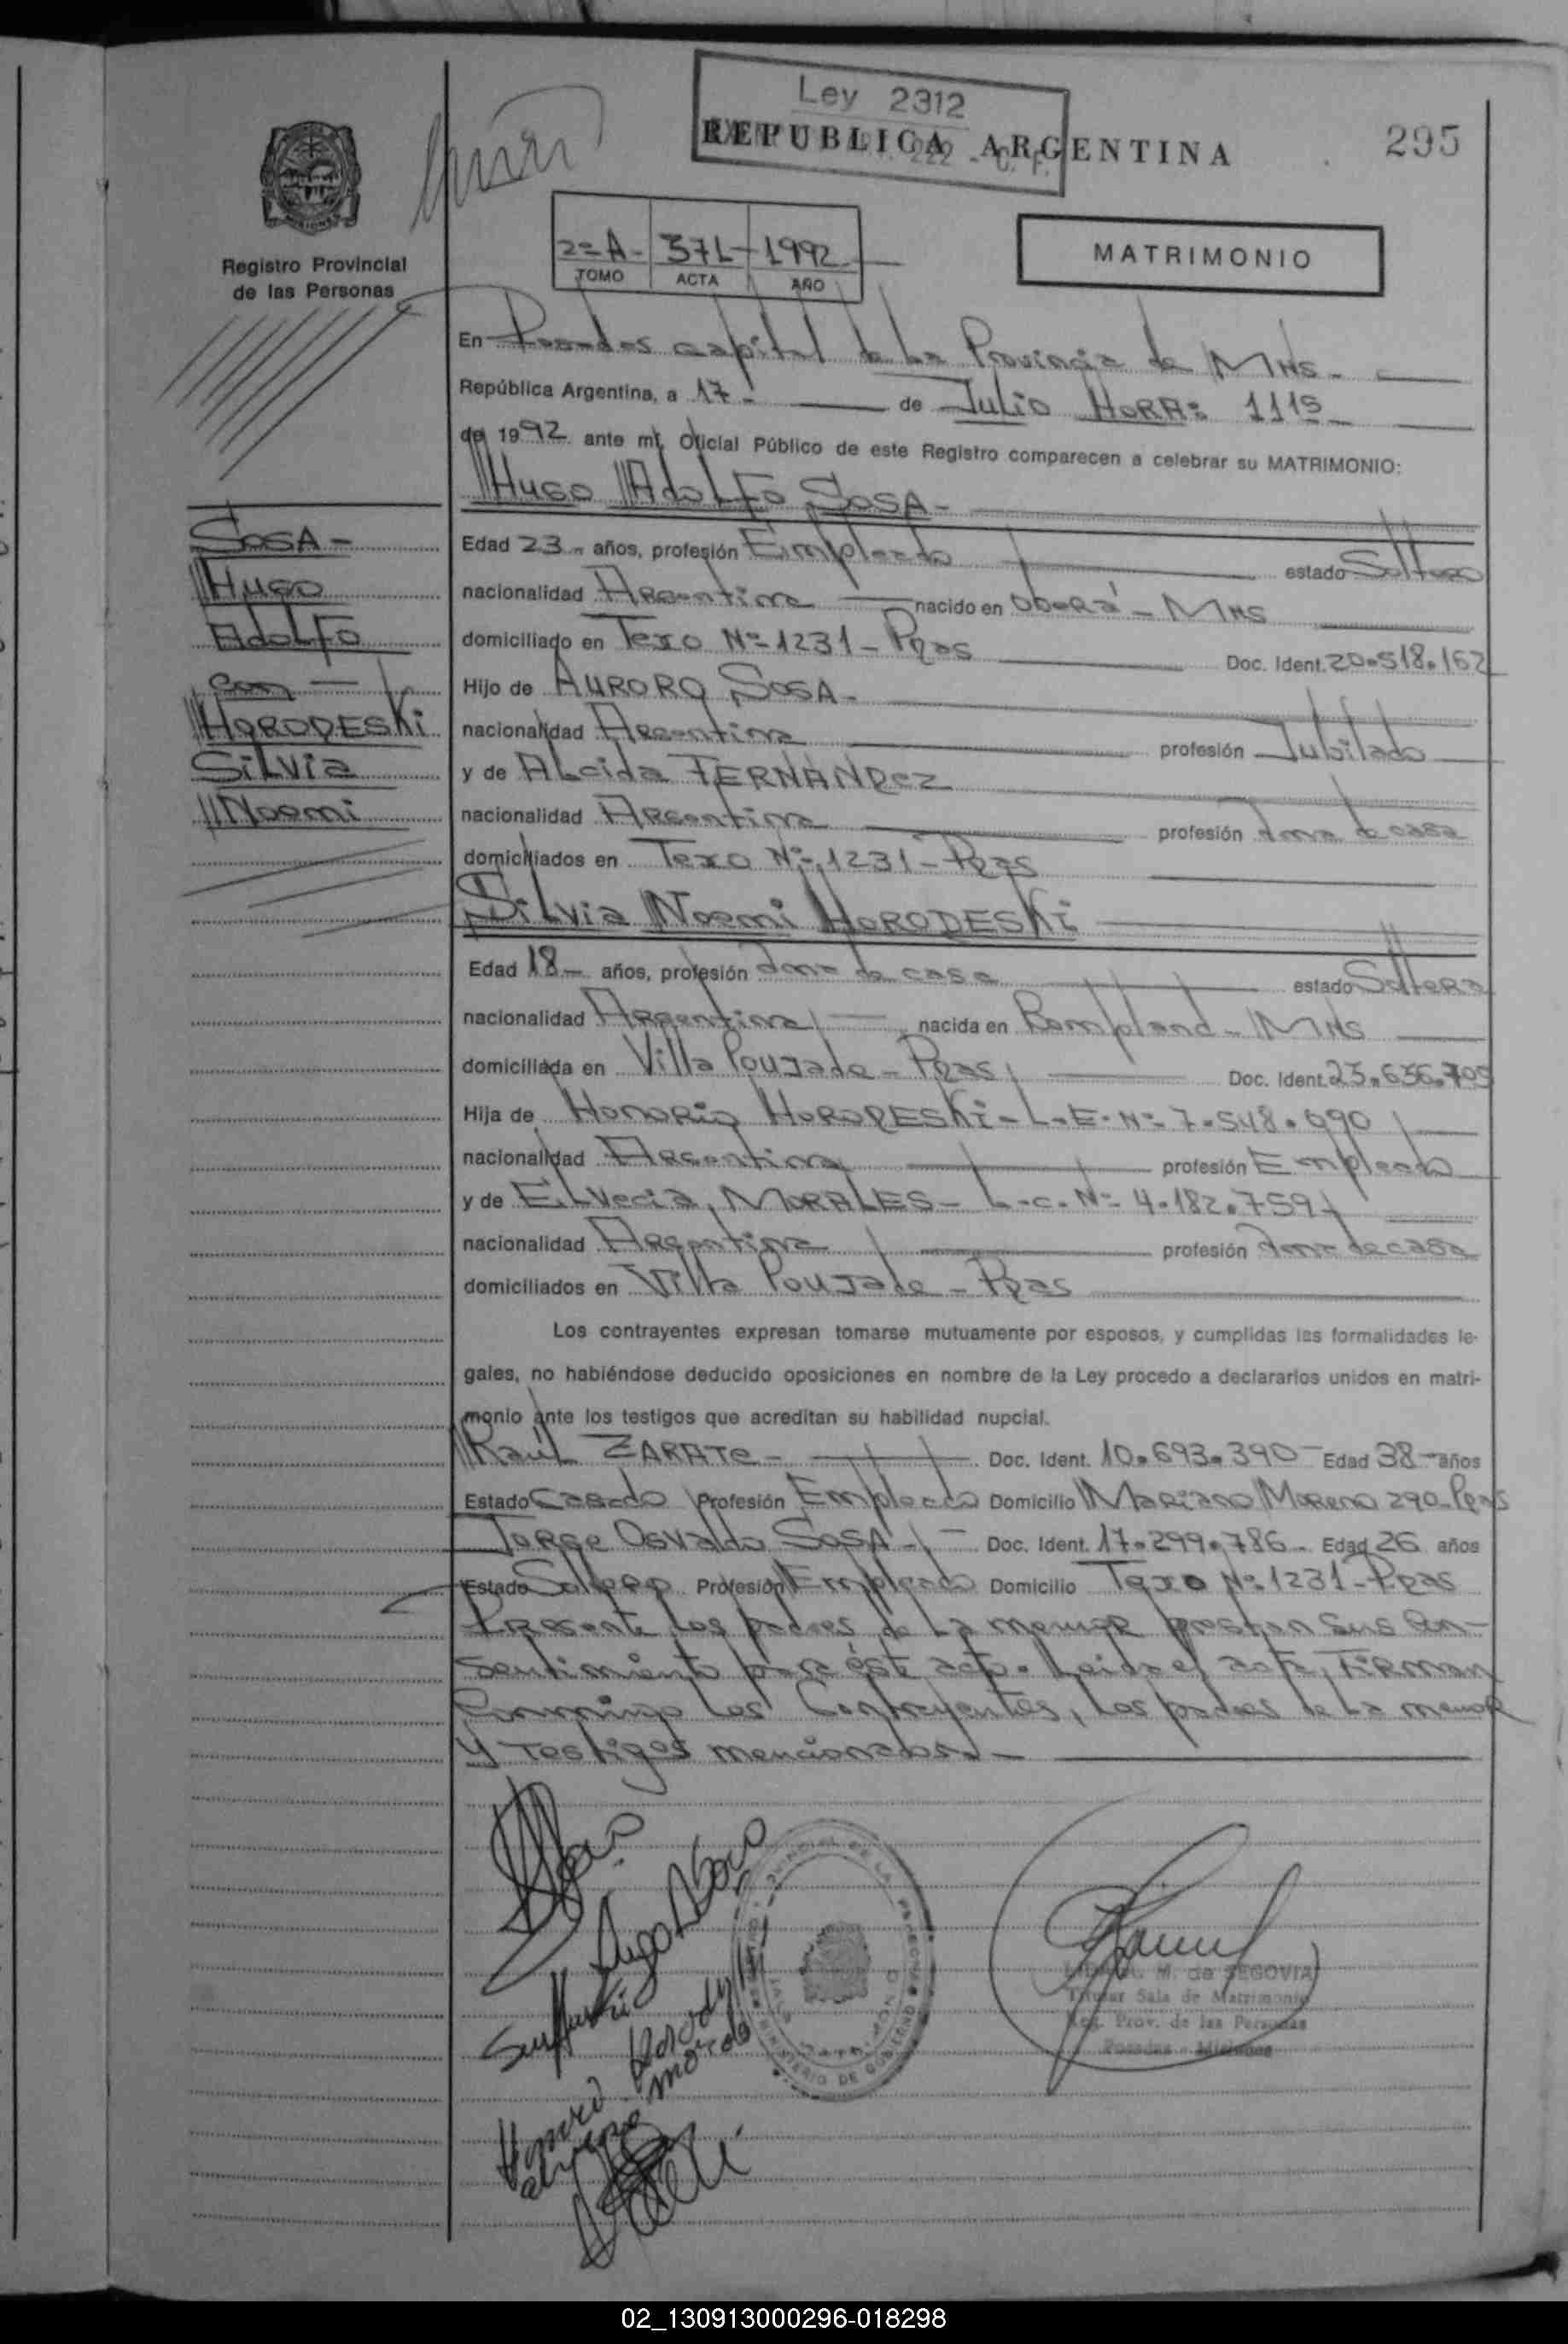 Ley 2312
REPUBLICA ARGENTINA
295
Registro Provincial
de las Personas
2=A- 371- 1992
TOMO ACTA AÑO
MATRIMONIO
En Posadas capital de la Provincia de Mns-
República Argentina, a 17- de Julio HORA: 1115
de 1992 ante mí, Oficial Público de este Registro comparecen a celebrar su MATRIMONIO:
Hugo Adolfo SOSA-
SOSA-
Hugo
Adolfo
con -
HORODESKi
Silvia
Noemi
Edad 23- años, profesión Empleado estado Soltero
nacionalidad Argentina nacido en Oberá- Mns
domiciliado en Texo Nº 1231- Pdas Doc. Ident. 20.518.162
Hijo de AURORO SOSA-
nacionalidad Argentina profesión Jubilado
y de Alcida FERNANDez
nacionalidad Argentina profesión Ama de casa
domiciliados en Texo Nº 1231- Pdas
Silvia Noemi HORODESKi
Edad 18- años, profesión Ama de casa estado Soltera
nacionalidad Argentina nacida en Bompland- Mns
domiciliada en Villa Poujade- Pdas Doc. Ident. 23.636.705
Hija de Honorio HORODESKi- L.E. Nº 7.548.090
nacionalidad Argentina profesión Empleado
y de ELvecia MORALES- L.C. Nº 4.182.759
nacionalidad Argentina profesión Ama de casa
domiciliados en Villa Poujade- Pdas
Los contrayentes expresan tomarse mutuamente por esposos, y cumplidas las formalidades le-
gales, no habiéndose deducido oposiciones en nombre de la Ley procedo a declararlos unidos en matri-
monio ante los testigos que acreditan su habilidad nupcial.
Raúl ZARATe- Doc. Ident. 10.693.390- Edad 38- años
Estado Casado Profesión Empleado Domicilio Mariano Moreno 290- Pdas
Jorge Osvaldo SOSA- Doc. Ident. 17.299.786- Edad 26 años
Estado Soltero Profesión Empleado Domicilio Texo Nº 1231- Pdas
Presente los padres de la menor prestan sus con-
sentimiento para éste acto. Leida el acta, Firman
conmigo los Contrayentes, los padres de la menor
y Testigos mencionados.-
M. de SEGOVIA
Titular Sala de Matrimonio
Reg. Prov. de las Personas
Posadas - Misiones
02_130913000296-018298